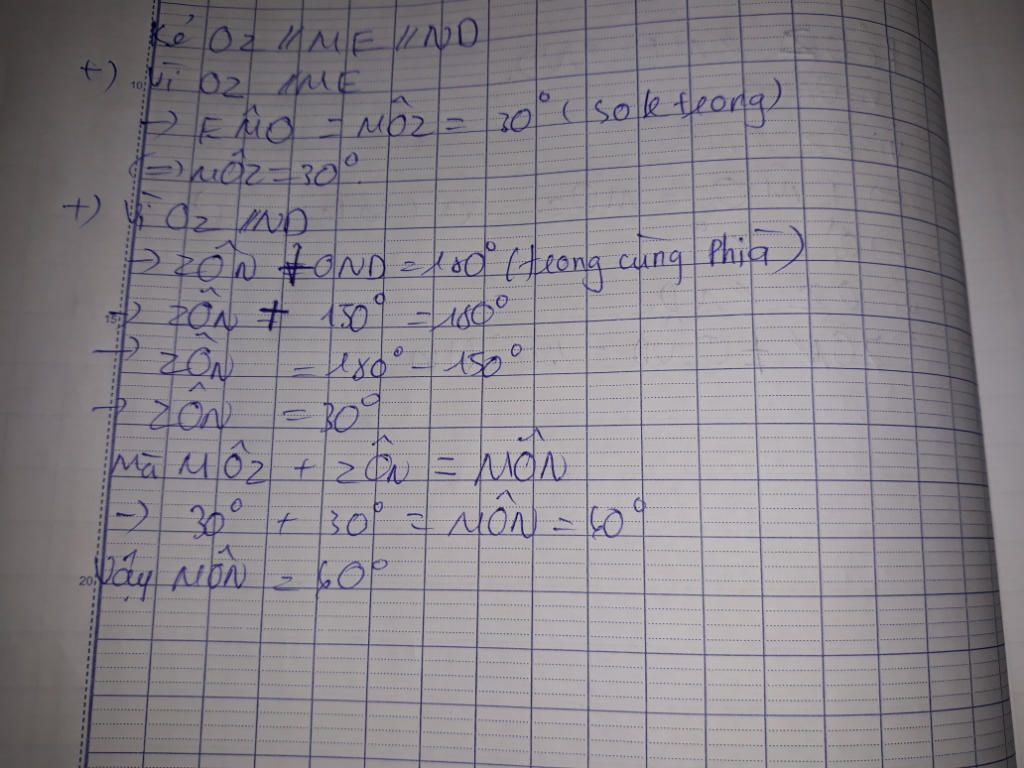 Kẻ Oz // ME // ND
+) Vì Oz // ME
10
→ EM̂O = MÔz = 30° (so le trong)
(=) MÔz = 30°
+) Vì Oz // ND
→ zÔN + OND = 180° (trong cùng phía)
→ zÔN + 150° = 180°
→ zÔN = 180° - 150°
→ zÔN = 30°
mà MÔz + zÔN = MÔN
→ 30° + 30° = MÔN = 60°
20 Vậy MÔN = 60°